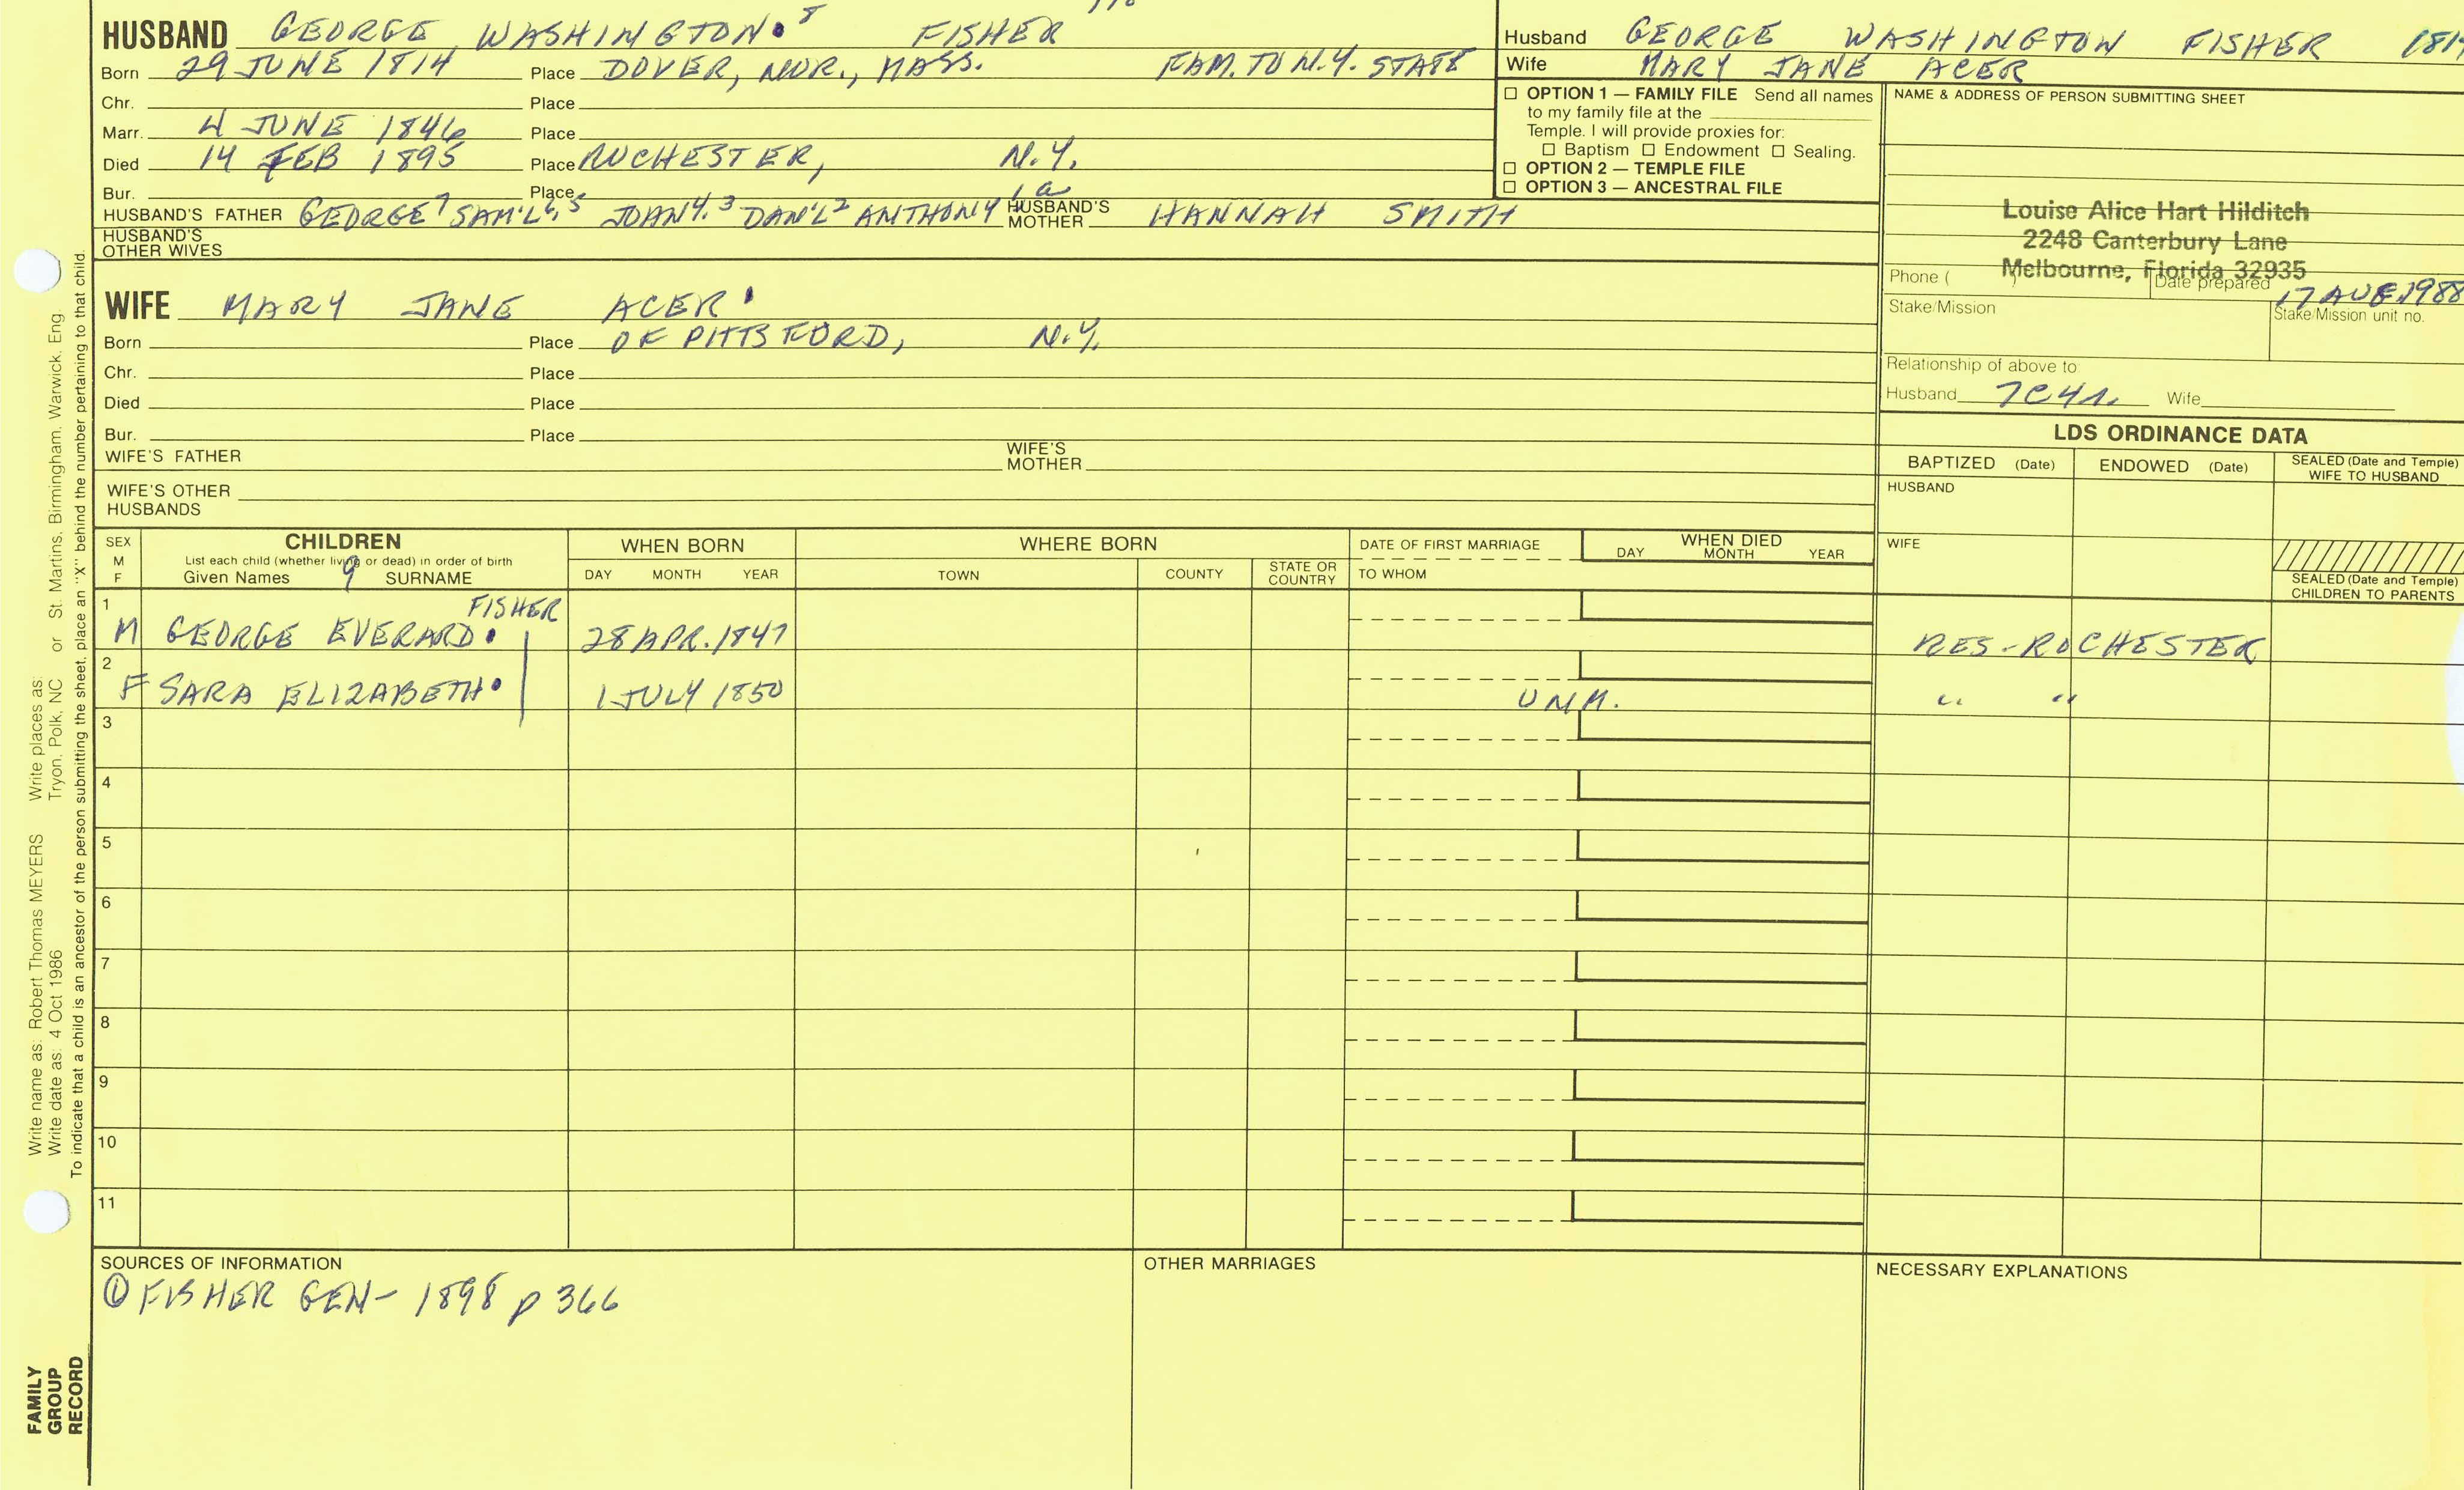 HUSBAND GEORGE WASHINGTON 8 FISHER
Born 29 JUNE 1814 Place DOVER, NOR., MASS. FAM. TO N.Y. STATE
Chr. Place
Marr. 4 JUNE 1846 Place
Died 14 FEB 1895 Place ROCHESTER, N.Y.
Bur. Place
HUSBAND'S FATHER GEORGE7 SAM'L6,5 JOHN4,3 DAN'L2 ANTHONY 1a HUSBAND'S MOTHER HANNAH SMITH
HUSBAND'S OTHER WIVES
WIFE MARY JANE ACER
Born Place OF PITTSFORD, N.Y.
Chr. Place
Died Place
Bur. Place
WIFE'S FATHER WIFE'S MOTHER
WIFE'S OTHER HUSBANDS
Husband GEORGE WASHINGTON FISHER
Wife MARY JANE ACER
☐ OPTION 1 — FAMILY FILE Send all names
to my family file at the
Temple. I will provide proxies for:
☐ Baptism ☐ Endowment ☐ Sealing.
☐ OPTION 2 — TEMPLE FILE
☐ OPTION 3 — ANCESTRAL FILE
NAME & ADDRESS OF PERSON SUBMITTING SHEET
Louise Alice Hart Hilditch
2248 Canterbury Lane
Melbourne, Florida 32935
Phone ( ) Date prepared 17 AUG. 1988
Stake/Mission Stake/Mission unit no.
Relationship of above to:
Husband 7C4R. Wife
LDS ORDINANCE DATA
BAPTIZED (Date) ENDOWED (Date) SEALED (Date and Temple) WIFE TO HUSBAND
HUSBAND
WIFE
SEALED (Date and Temple) CHILDREN TO PARENTS
SEX M F
CHILDREN
List each child (whether living or dead) in order of birth
Given Names 9 SURNAME
WHEN BORN
DAY MONTH YEAR
WHERE BORN
TOWN COUNTY STATE OR COUNTRY
DATE OF FIRST MARRIAGE
TO WHOM
WHEN DIED
DAY MONTH YEAR
1 FISHER
M GEORGE EVERARD 28 APR. 1847 RES-ROCHESTER
2
F SARA ELIZABETH 1 JULY 1850 UNM. " "
3
4
5
6
7
8
9
10
11
SOURCES OF INFORMATION
① FISHER GEN- 1898 p 366
OTHER MARRIAGES
NECESSARY EXPLANATIONS
Write name as: Robert Thomas MEYERS Write places as: Tryon, Polk, NC or St. Martins, Birmingham, Warwick, Eng.
Write date as: 4 Oct 1986
To indicate that a child is an ancestor of the person submitting the sheet, place an "X" behind the number pertaining to that child.
FAMILY
GROUP
RECORD